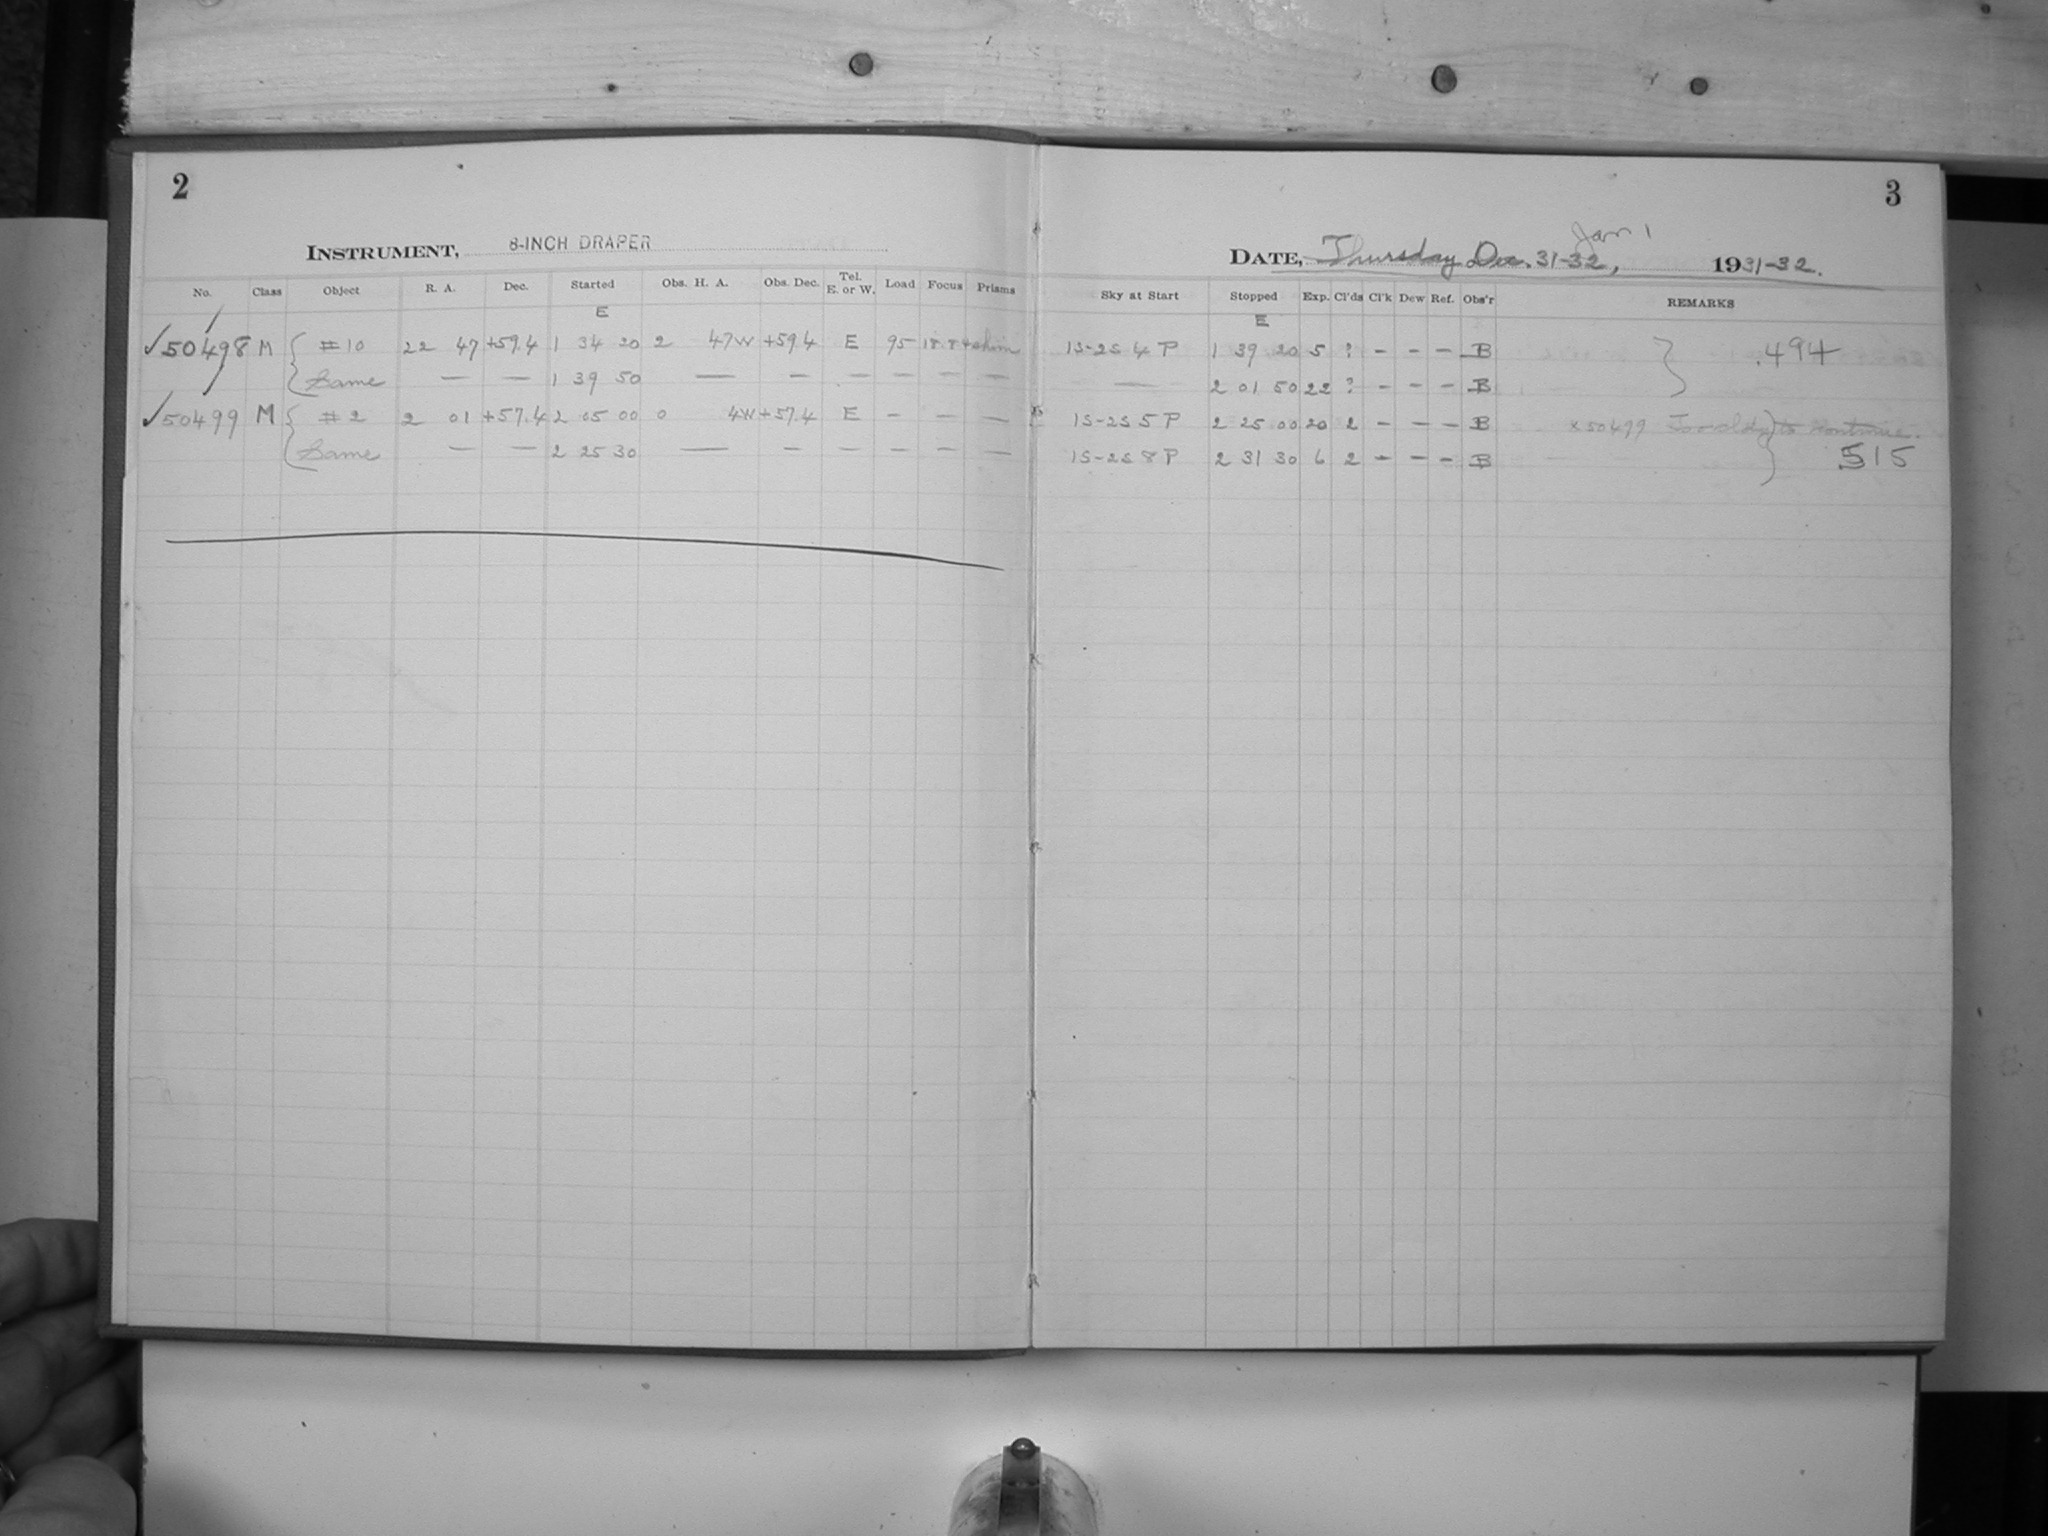 2
INSTRUMENT, 8-INCH DRAPER
No. Class Object R. A. Dec. Started Obs. H. A. Obs. Dec. Tel. E. or W. Load Focus Prisms
E
✓50498 M #10 22 47 +59.4 1 34 20 2 47W +59.4 E 95
Same — — 1 39 50 — — — — — —
✓50499 M #2 2 01 +57.4 2 05 00 0 4W +57.4 E - - —
Same — — 2 25 30 — — — — — —
3
Jan 1
DATE, Thursday Dec. 31-32, 1931-32.
Sky at Start Stopped Exp. Cl'ds Cl'k Dew Ref. Obs'r REMARKS
E
1S-2S 4 P 1 39 20 5 ? - - - B .494
— 2 01 50 22 ? - - - B
1S-2S 5 P 2 25 00 20 2 - - - B x 50499 Too cldy to continue.
1S-2S 8 P 2 31 30 6 2 - - - B 515